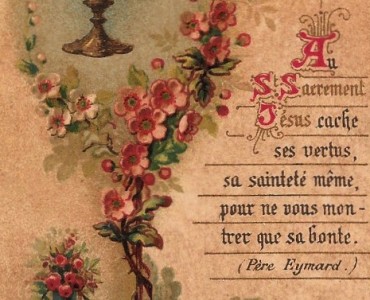 Au
St Sacrement
Jésus cache
ses vertus,
sa sainteté même,
pour ne vous mon-
trer que sa bonte.
(Père Eymard.)